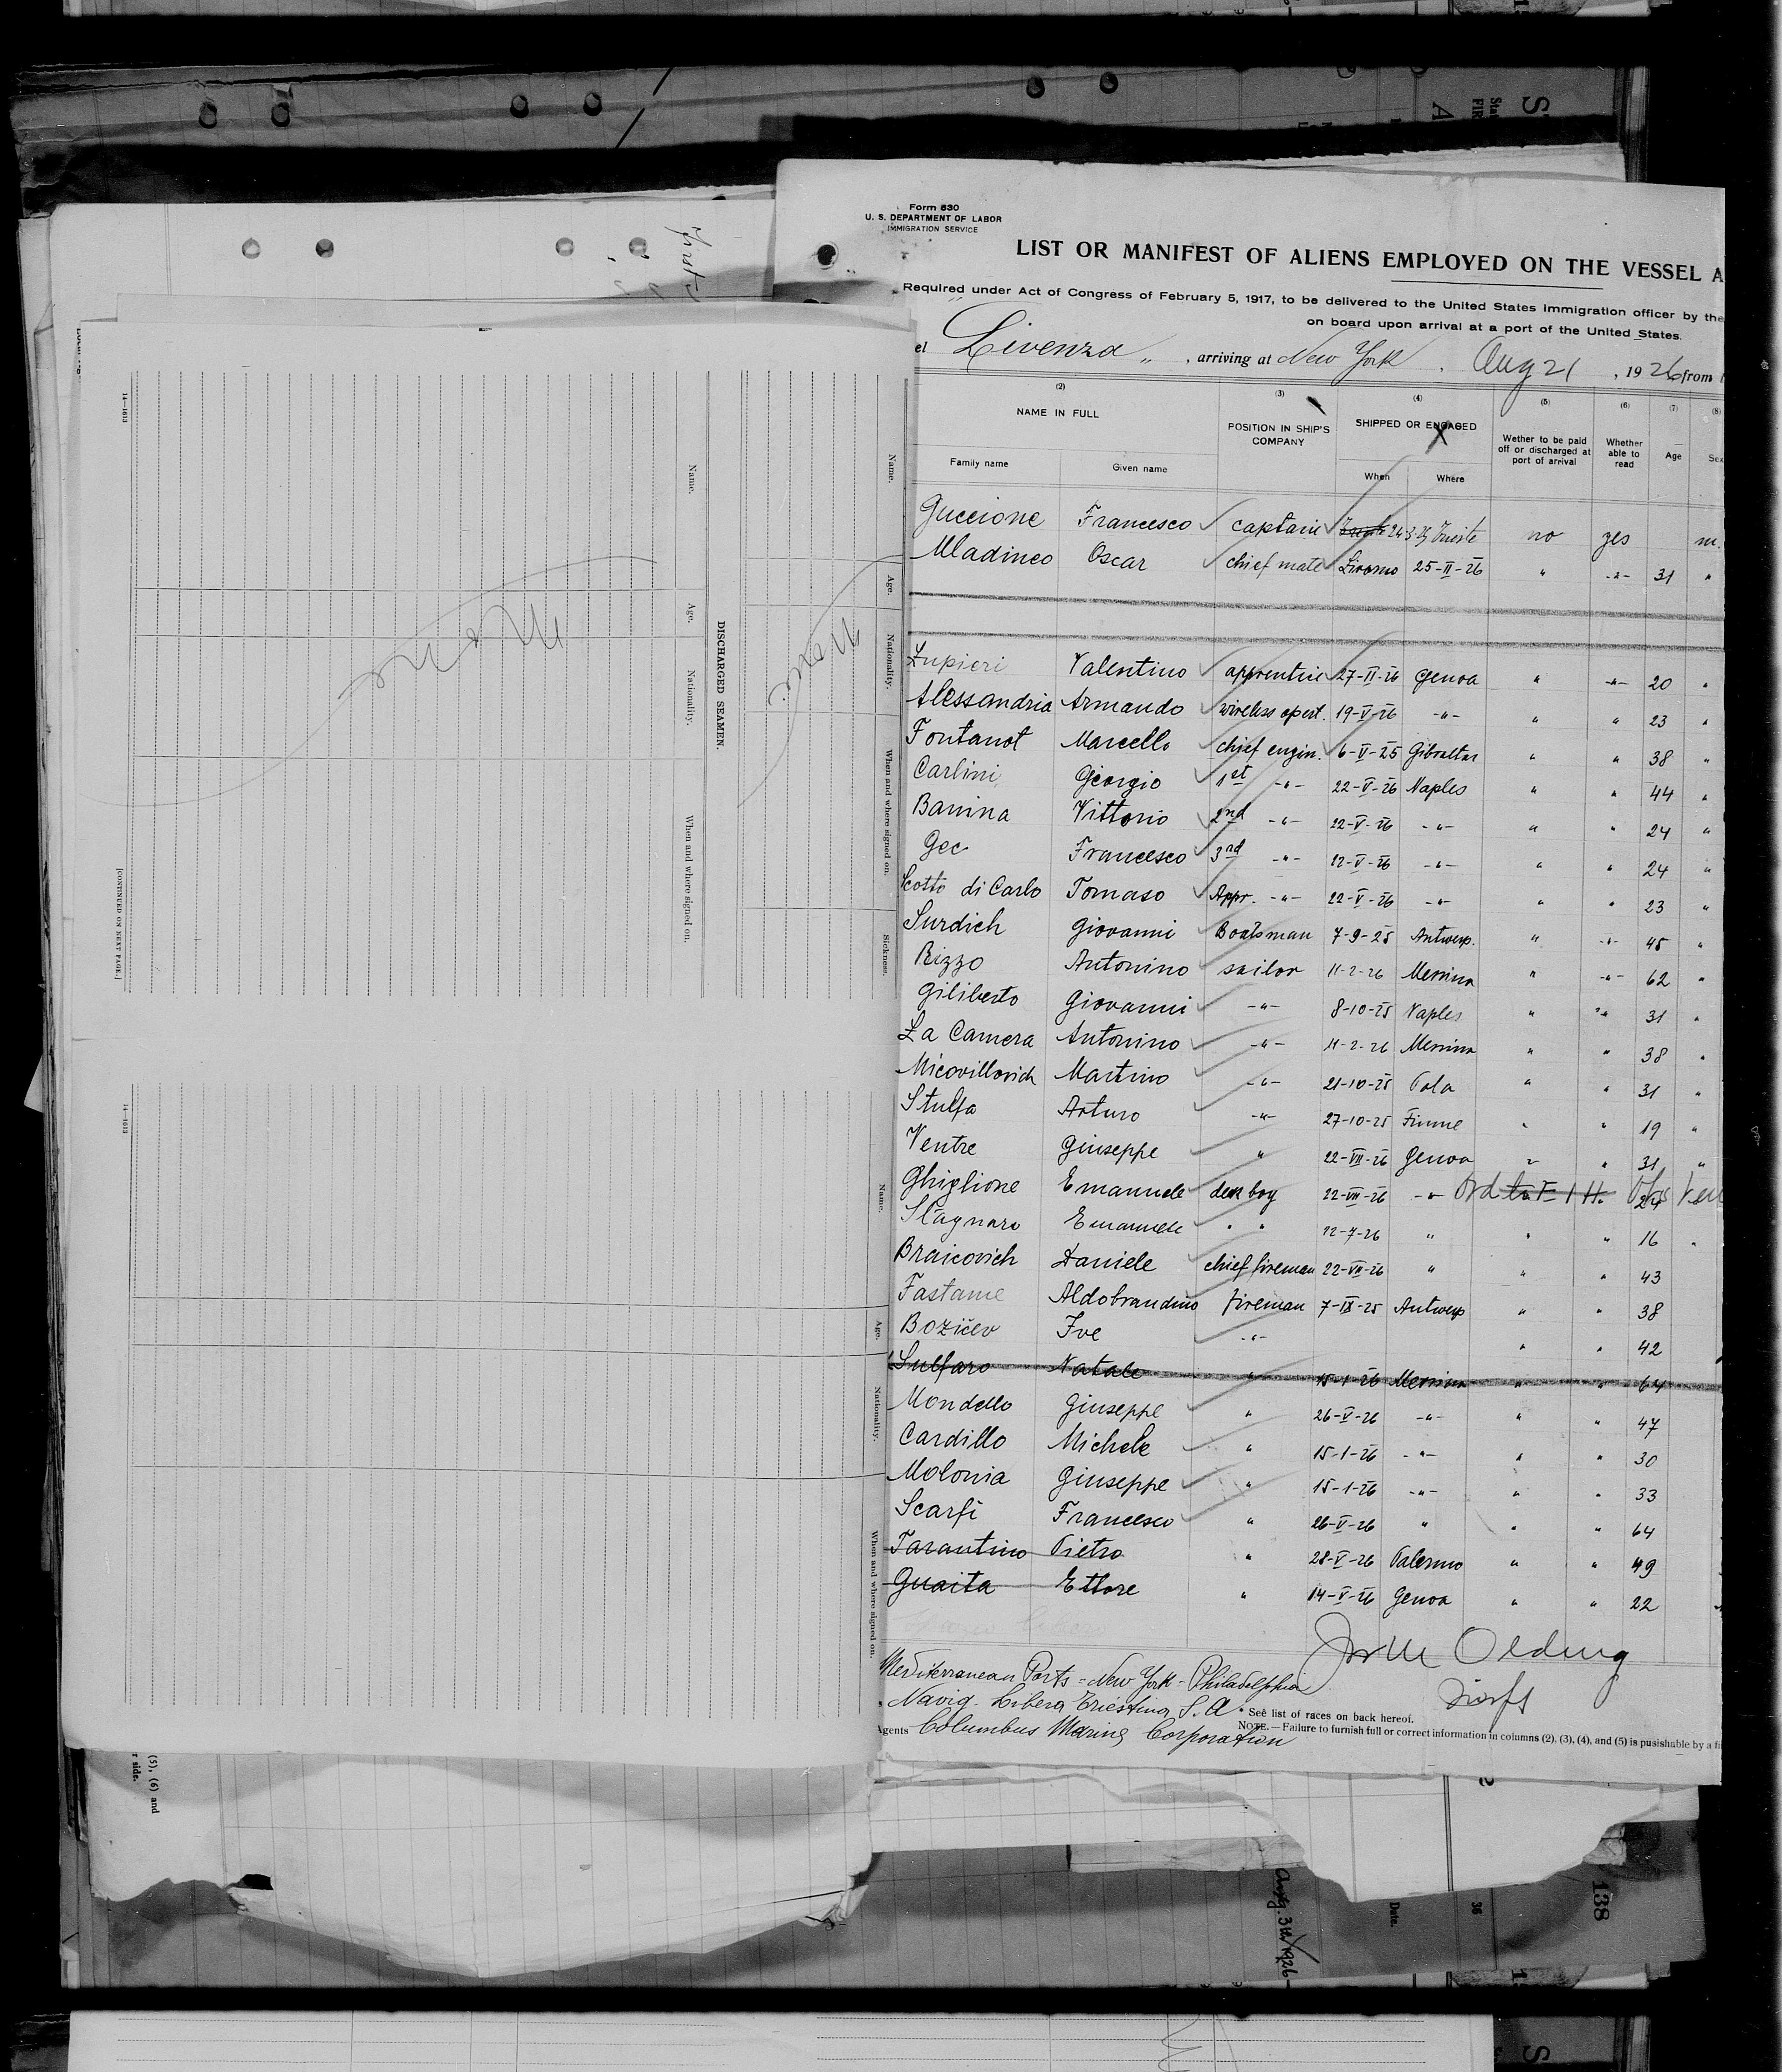 Form 630
U. S. DEPARTMENT OF LABOR
IMMIGRATION SERVICE
LIST OR MANIFEST OF ALIENS EMPLOYED ON THE VESSEL A
Required under Act of Congress of February 5, 1917, to be delivered to the United States immigration officer by the
on board upon arrival at a port of the United States.
el Livenza „ , arriving at New York . Aug 21 , 1926 from
(2) (3) (4) (5) (6) (7) (8)
NAME IN FULL POSITION IN SHIP'S COMPANY SHIPPED OR ENGAGED Wether to be paid off or discharged at port of arrival Whether able to read Age Sex
Family name Given name When Where
Guccione Francesco captain 24-3-25 Trieste no yes m.
Mladineo Oscar chief mate Livorno 25-II-26 " -"- 31 "
Lupieri Valentino apprentice 27-II-26 Genoa " -"- 20 "
Alessandria Armando wireless opert. 19-V-26 -"- " " 23 "
Fontanot Marcello chief engin. 6-V-25 Gibraltar " " 38 "
Carlini Georgio 1st -"- 22-V-26 Naples " " 44 "
Banina Vittorio 2nd -"- 22-V-26 -"- " " 24 "
Gec Francesco 3rd -"- 22-V-26 -"- " " 24 "
Scotto di Carlo Tomaso Appr. -"- 22-V-26 -"- " " 23 "
Surdich Giovanni Boatsman 7-9-25 Antwerp. " -"- 45 "
Rizzo Antonino sailor 11-2-26 Messina " -"- 62 "
Giliberto Giovanni -"- 8-10-25 Naples " " 31 "
La Camera Antonino -"- 11-2-26 Messina " " 38 "
Micovillovich Martino -"- 21-10-25 Pola " " 31 "
Stulfa Arturo -"- 27-10-25 Fiume " " 19 "
Ventre Giuseppe " 22-VII-26 Genoa " " 31 "
Ghiglione Emanuele deck boy 22-VII-26 -"- Ord to 24
Stagnaro Emanuele " " 22-7-26 " " " 16 "
Braicovich Daniele chief fireman 22-VII-26 " " " 43
Fastame Aldobrandino fireman 7-IX-25 Antwerp " " 38
Božičev Ive -"- " " 42
Sulfaro Natale " 15-1-26 Messina " " 64
Mondello Giuseppe " 26-V-26 -"- " " 47
Cardillo Michele " 15-1-26 -"- " " 30
Molonia Giuseppe " 15-1-26 -"- " " 33
Scarfi Francesco " 26-V-26 " " " 64
Tarantino Pietro " 28-V-26 Palermo " " 49
Guaita Ettore " 14-V-26 Genoa " " 22
Mediterranean Ports - New York - Philadelphia
Navig. Libera Triestina S. A.
* See list of races on back hereof.
Agents Columbus Marine Corporation
NOTE.—Failure to furnish full or correct information in columns (2), (3), (4), and (5) is pusishable by a fi
Name. Age. Nationality. When and where signed on. Sickness.
None
DISCHARGED SEAMEN.
Name. Age. Nationality. When and where signed on.
None
[CONTINUED ON NEXT PAGE.]
14—1613
Name. Age. Nationality. When and where signed on.
14—1613
First
(5), (6) and
r side.
Date.
36
138